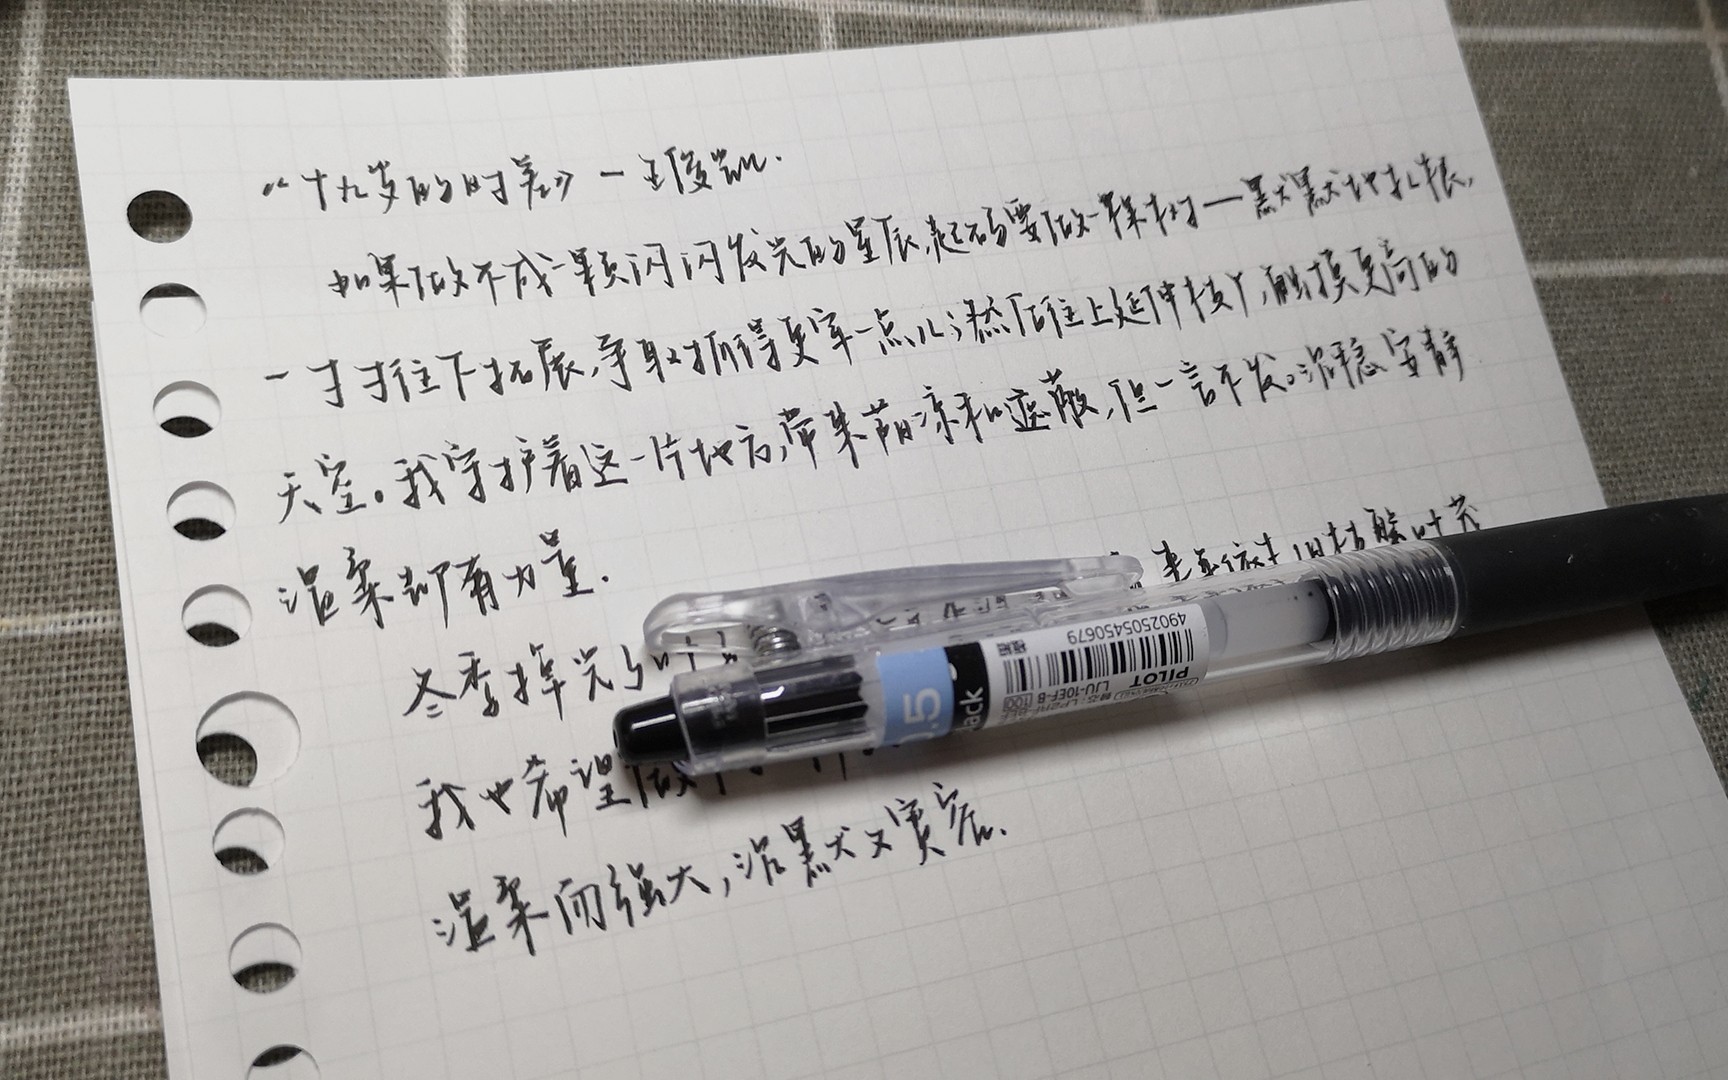 “十九岁的时差》一王俊凯.
如果做不成一颗闪闪发光的星辰,起码要做一棵树一默默地扎根,
一寸寸往下拓展,争取抓得更牢一点儿;然后往上延伸枝丫,触摸更高的
天空。我守护着这一片地方,带来荫凉和遮蔽,但一言不发。沉稳安静
温柔却有力量.
冬季掉完了叶
依
叶茂
我也希望做
温柔而强大,沉默又宽宏.
0.5
ack
4902505450679
PILOT
LJU-10EF-B
100